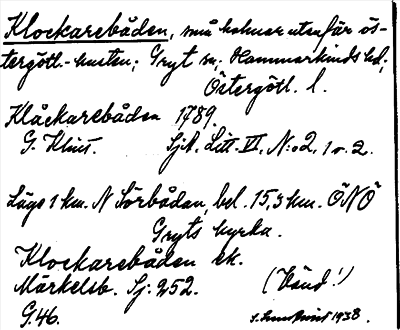 Klockarebåden, små holmar utanför ös-
tergötl.-kusten; Gryt sn; Hammarkinds hd,
Östergötl. l.
Klåckarebåden 1789.
G. Klint. Sjk. Litt. VI, N:o 2, 1 o. 2.
Läge 1 km. N Sörbådan, bel. 15,3 km. ÖNÖ
Gryts kyrka.
Klockarebåden ek.
Märkelsb. Sj: 252. (Vänd!)
G. 46. 1938.